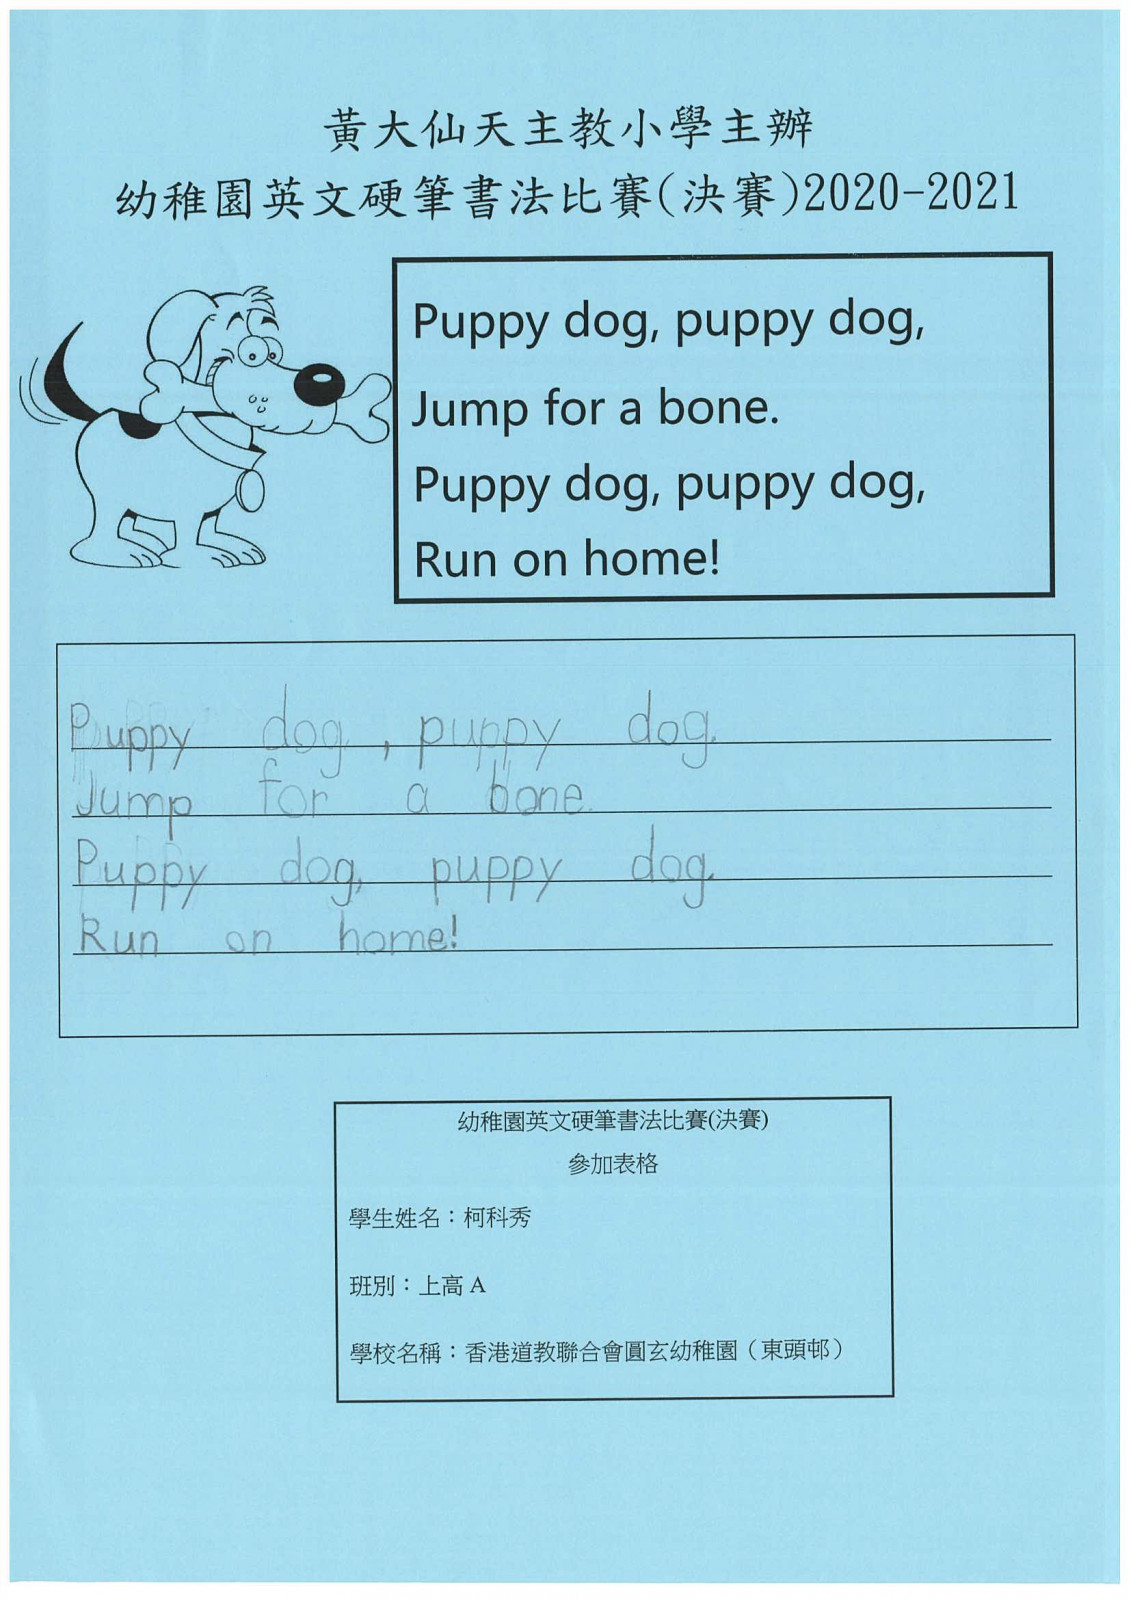 黃大仙天主教小學主辦
幼稚園英文硬筆書法比賽(決賽)2020-2021
Puppy dog, puppy dog,
Jump for a bone.
Puppy dog, puppy dog,
Run on home!
Puppy dog, puppy dog,
Jump for a bone.
Puppy dog, puppy dog,
Run on home!
幼稚園英文硬筆書法比賽(決賽)
參加表格
學生姓名：柯科秀
班別：上高 A
學校名稱：香港道教聯合會圓玄幼稚園（東頭邨）